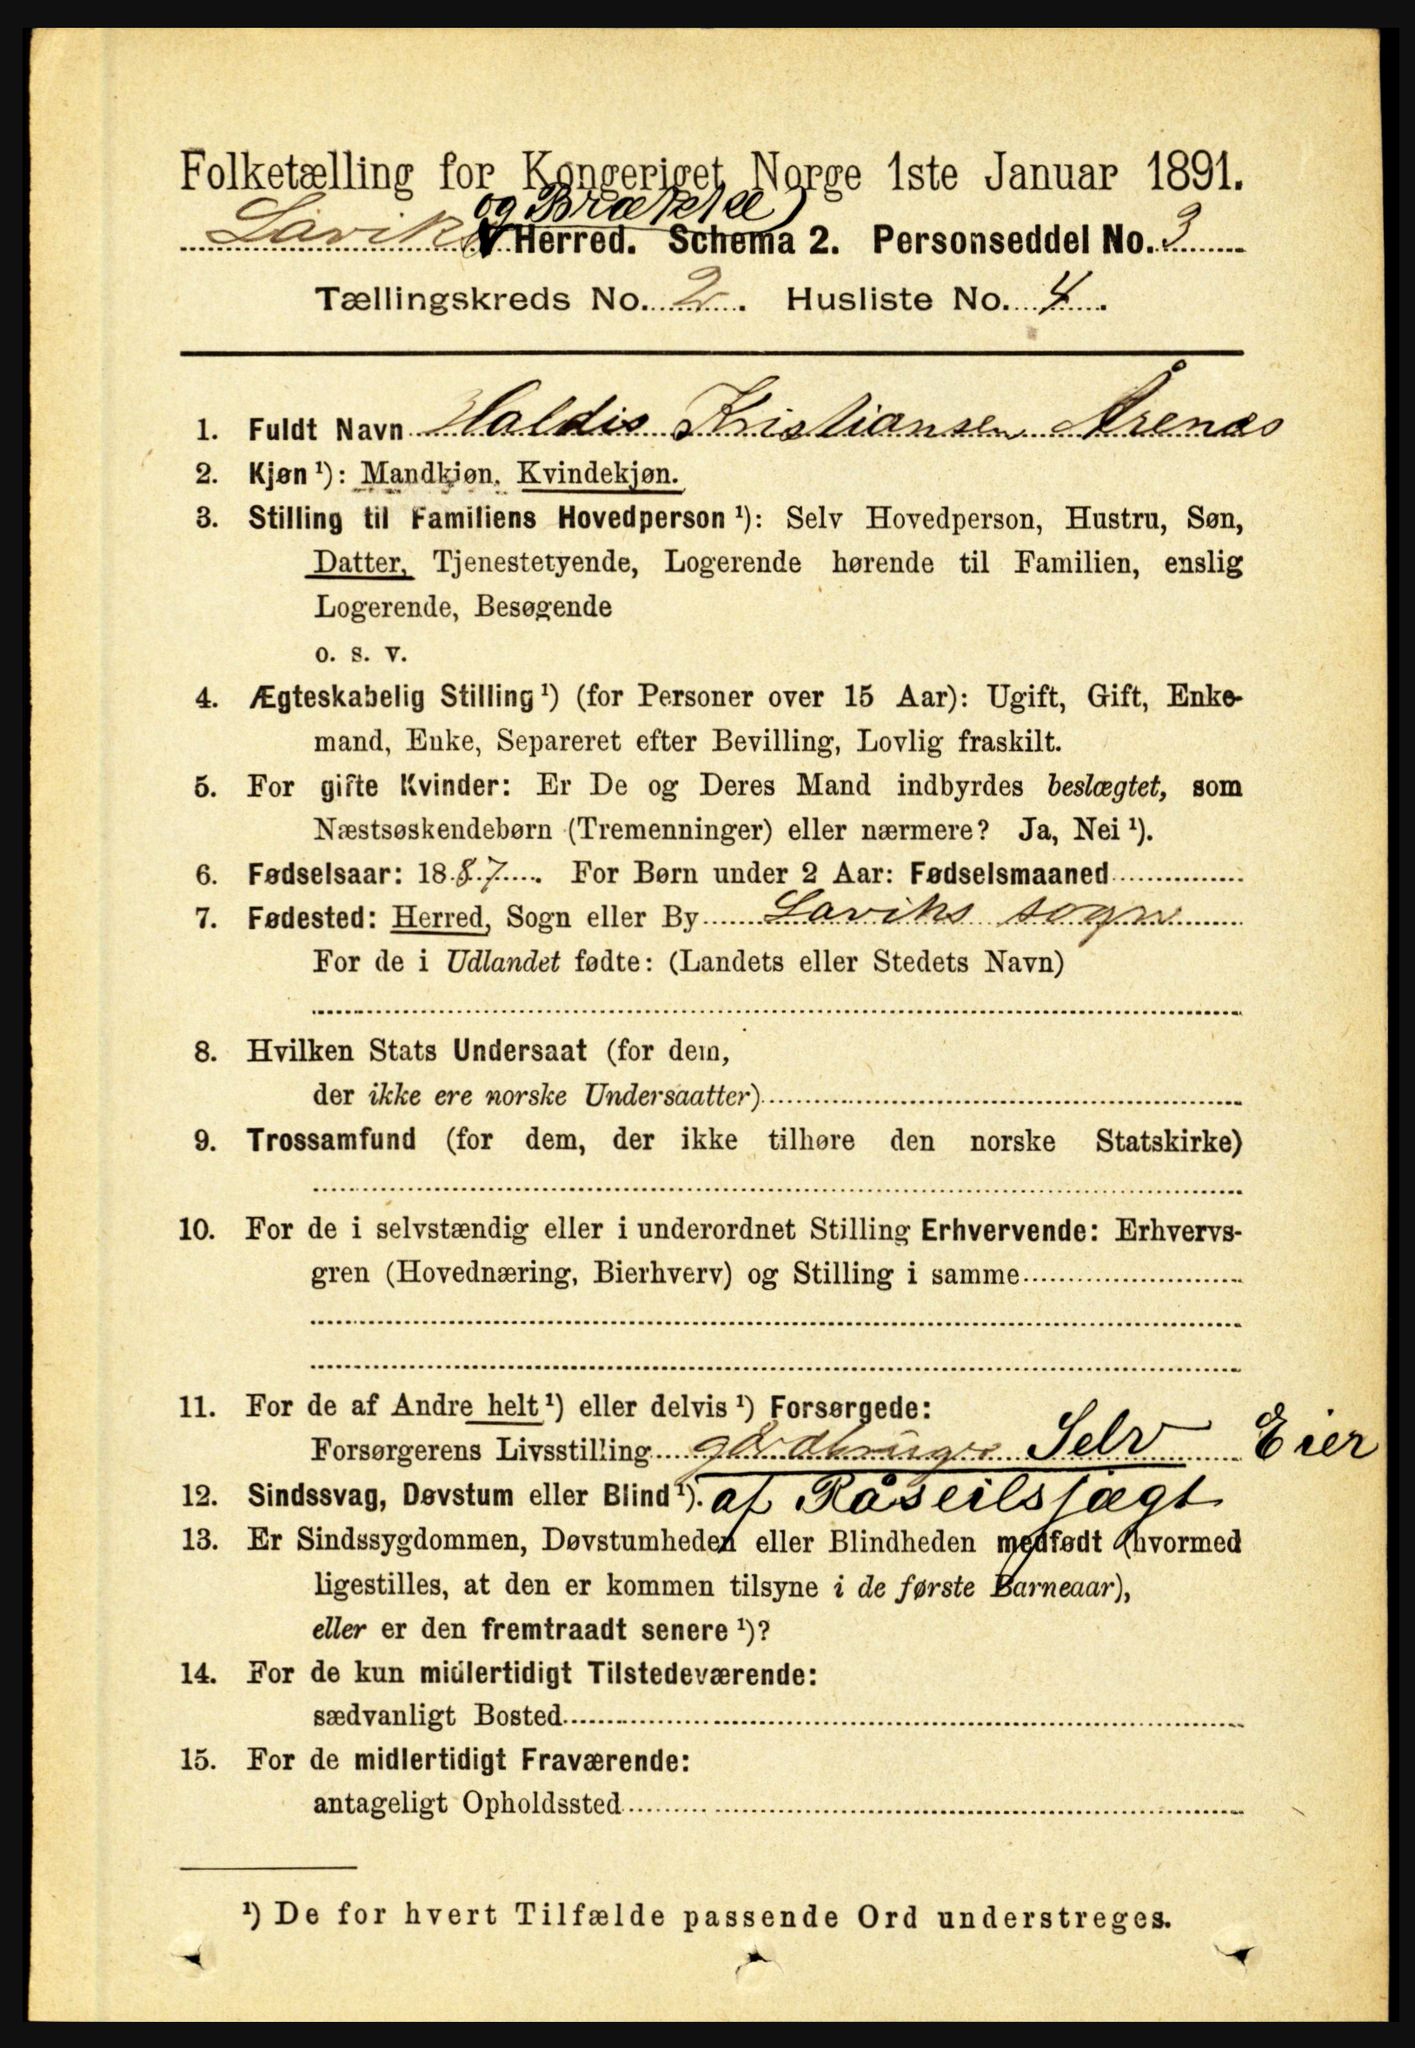 Folketælling for Kongeriget Norge 1ste Januar 1891.
og Brække
Lavik Herred. Schema 2. Personseddel No. 3
Tællingskreds No. 2. Husliste No. 4.
1. Fuldt Navn Haldis Kristiansen Årenæs
2. Kjøn ¹): Mandkjøn. Kvindekjøn.
3. Stilling til Familiens Hovedperson ¹): Selv Hovedperson, Hustru, Søn,
Datter, Tjenestetyende, Logerende hørende til Familien, enslig
Logerende, Besøgende
o. s. v.
4. Ægteskabelig Stilling ¹) (for Personer over 15 Aar): Ugift, Gift, Enke-
mand, Enke, Separeret efter Bevilling, Lovlig fraskilt.
5. For gifte Kvinder: Er De og Deres Mand indbyrdes beslægtet, som
Næstsøskendebørn (Tremenninger) eller nærmere? Ja, Nei ¹).
6. Fødselsaar: 1887. For Børn under 2 Aar: Fødselsmaaned
7. Fødested: Herred, Sogn eller By Laviks sogn
For de i Udlandet fødte: (Landets eller Stedets Navn)
8. Hvilken Stats Undersaat (for dem,
der ikke ere norske Undersaatter)
9. Trossamfund (for dem, der ikke tilhøre den norske Statskirke)
10. For de i selvstændig eller i underordnet Stilling Erhvervende: Erhvervs-
gren (Hovednæring, Bierhverv) og Stilling i samme
11. For de af Andre helt ¹) eller delvis ¹) Forsørgede:
Forsørgerens Livsstilling gårdbruger Selv Eier
12. Sindssvag, Døvstum eller Blind ¹). af Råseilsjægt
13. Er Sindssygdommen, Døvstumheden eller Blindheden medfødt (hvormed
ligestilles, at den er kommen tilsyne i de første Barneaar),
eller er den fremtraadt senere ¹)?
14. For de kun midlertidigt Tilstedeværende:
sædvanligt Bosted
15. For de midlertidigt Fraværende:
antageligt Opholdssted
¹) De for hvert Tilfælde passende Ord understreges.